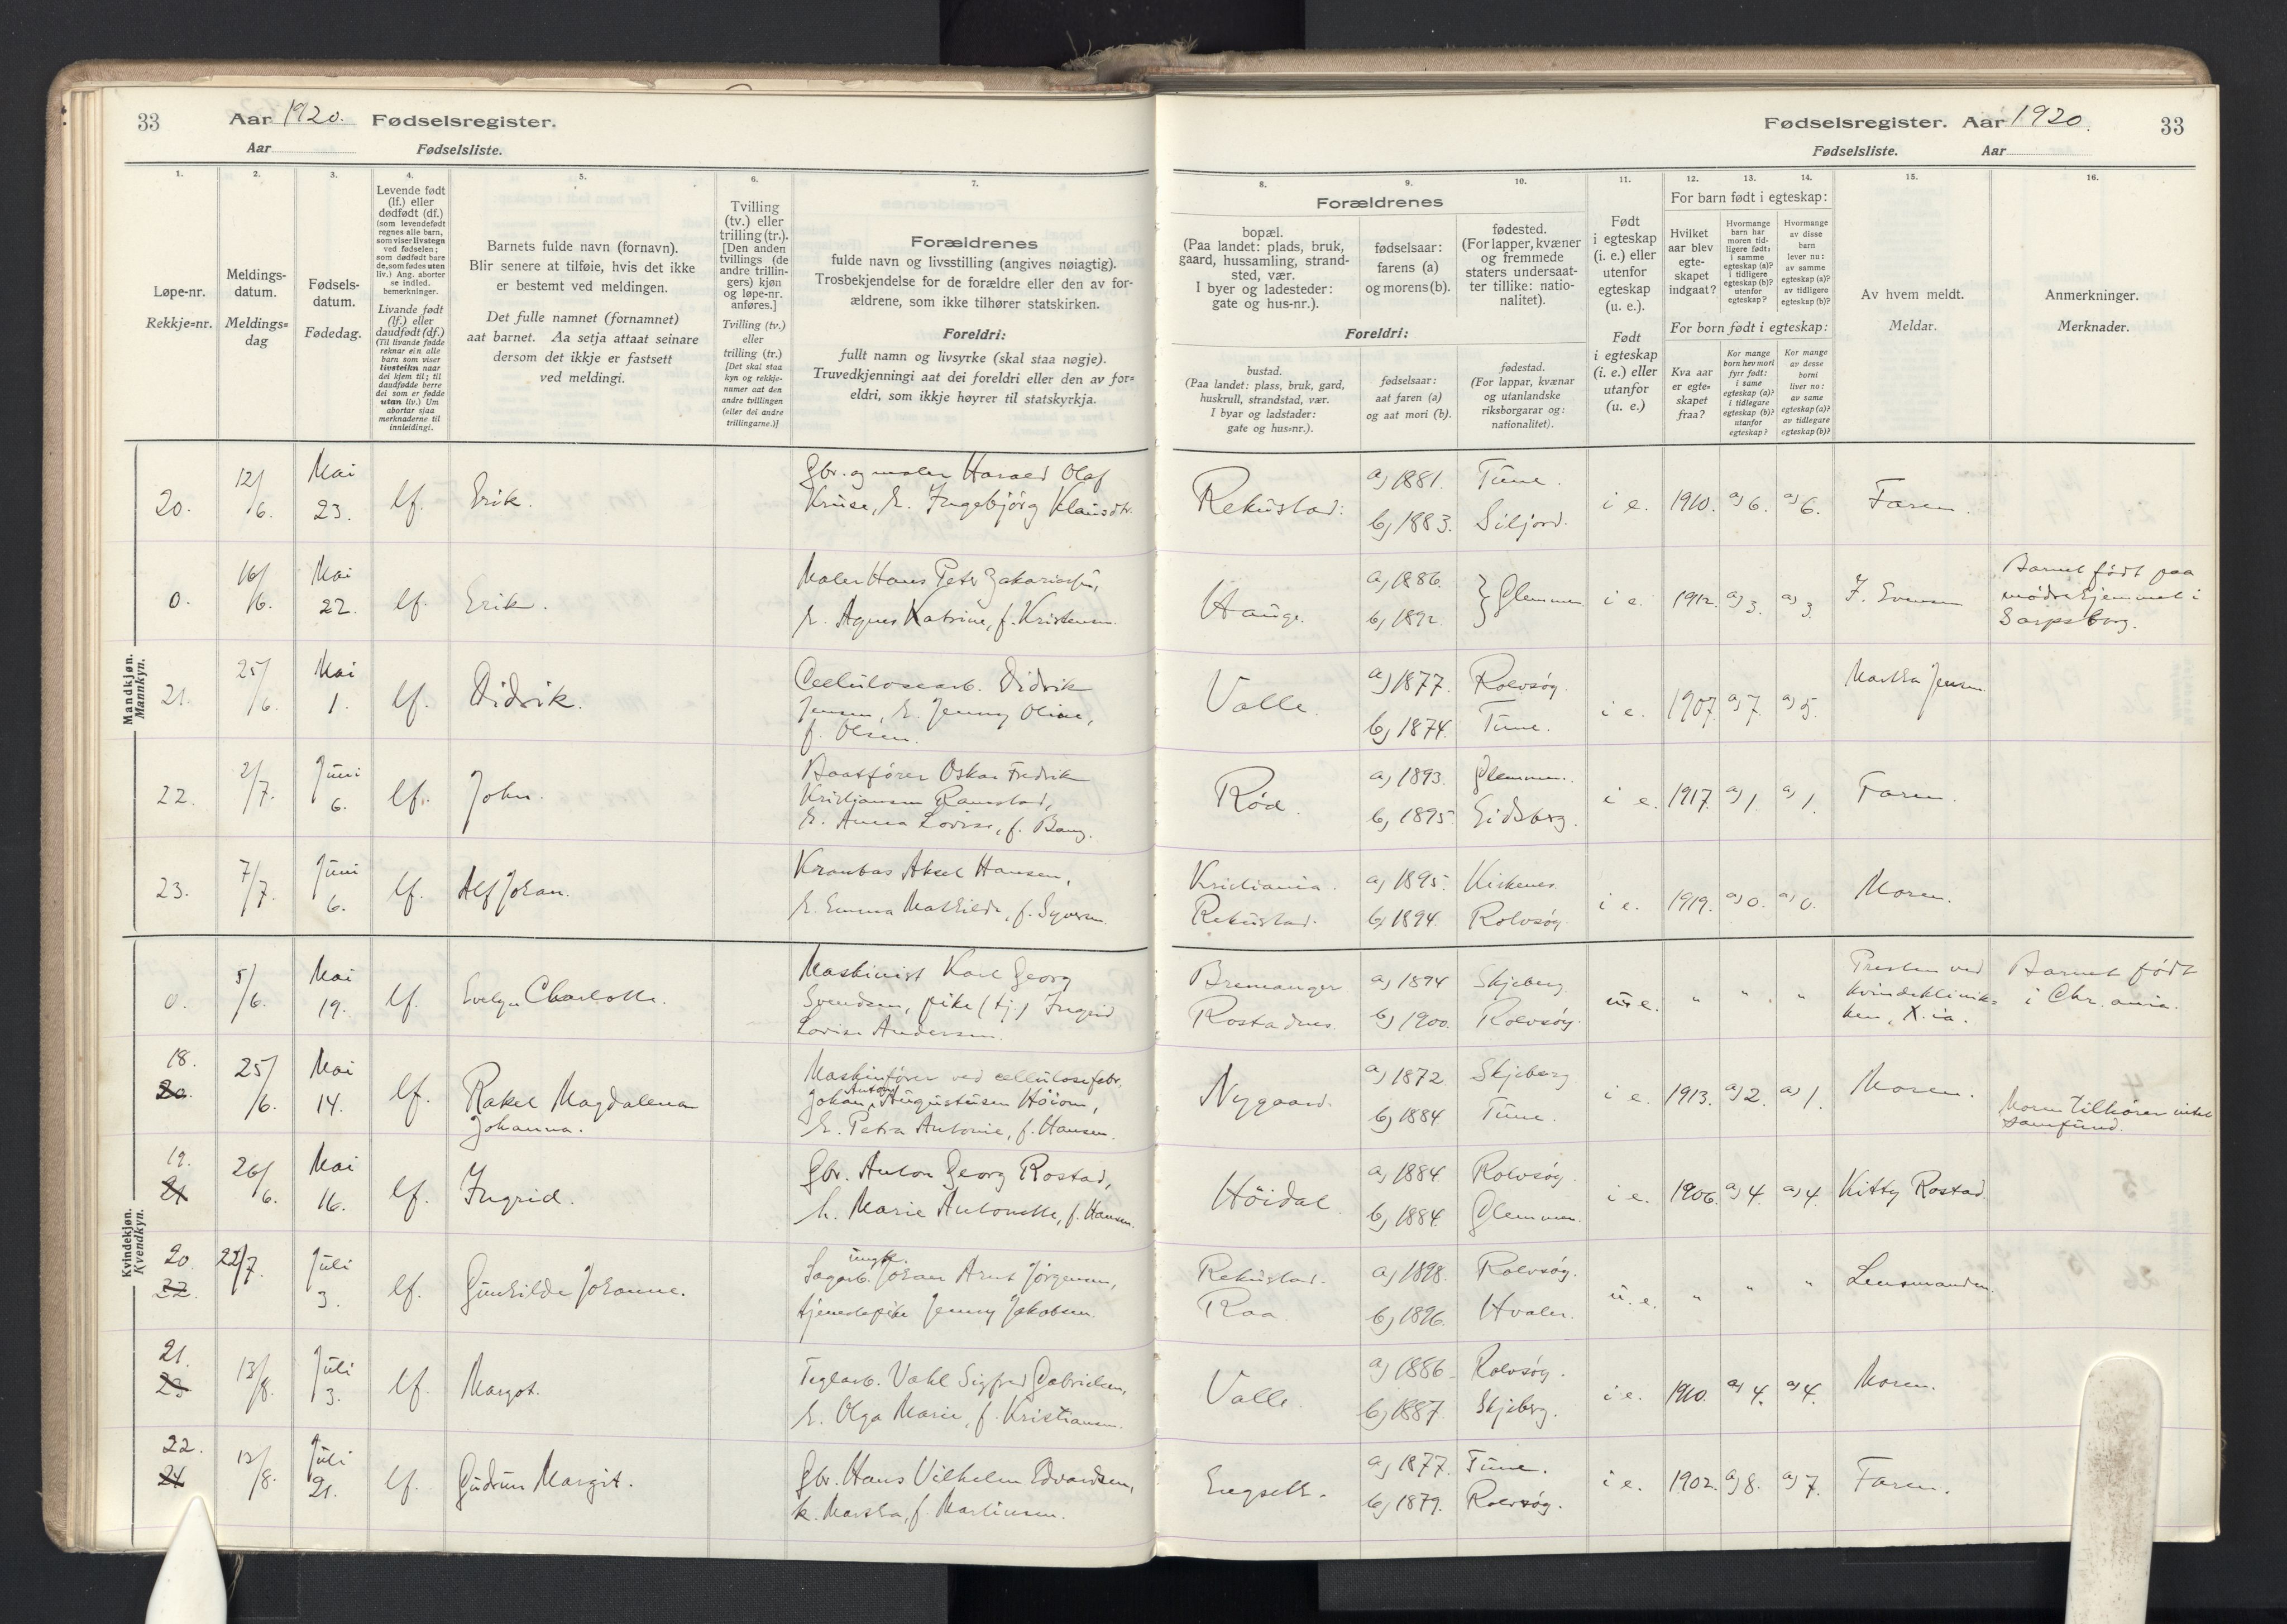 33
Aar 1920. Fødselsregister.
Aar Fødselsliste.
1.
Løpe-nr.
Rekkje=nr.
2.
Meldings-
datum.
Meldings=
dag
3.
Fødsels-
datum.
Fødedag.
4.
Levende født
(lf.) eller
dødfødt (df.)
(som levendefødt
regnes alle barn,
som viser livstegn
ved fødselen;
som dødfødt bare
de, som fødes uten
liv.) Ang. aborter
se indled.
bemerkninger.
Livande født
(lf.) eller
daudfødt (df.)
(Til livande fødde
reknar ein alle
barn som viser
livsteikn naar
dei kjem til; til
daudfødde berre
dei som er fødde
utan liv.) Um
abortar sjaa
merknaderne til
innleidingi.
5.
Barnets fulde navn (fornavn).
Blir senere at tilføie, hvis det ikke
er bestemt ved meldingen.
Det fulle namnet (fornamnet)
aat barnet. Aa setja attaat seinare
dersom det ikkje er fastsett
ved meldingi.
6.
Tvilling
(tv.) eller
trilling (tr.).
[Den anden
tvillings (de
andre trillin-
gers) kjøn
og løpe-nr.
anføres.]
Tvilling (tv.)
eller
trilling (tr.)
[Det skal staa
kyn og rekkje-
numer aat den
andre tvillingen
(eller dei andre
trillingarne.)]
7.
Forældrenes
fulde navn og livsstilling (angives nøiagtig).
Trosbekjendelse for de forældre eller den av for-
ældrene, som ikke tilhører statskirken.
Foreldri:
fullt namn og livsyrke (skal staa nøgje).
Truvedkjenningi aat dei foreldri eller den av for=
eldri, som ikkje høyrer til statskyrkja.
Fødselsregister. Aar 1920.
33
Fødselsliste. Aar
Forældrenes
8.
bopæl.
(Paa landet: plads, bruk,
gaard, hussamling, strand-
sted, vær.
I byer og ladesteder:
gate og hus-nr.).
9.
fødselsaar:
farens (a)
og morens (b).
10.
fødested.
(For lapper, kvæner
og fremmede
staters undersaat-
ter tillike: natio-
nalitet).
Foreldri:
bustad.
(Paa landet: plass, bruk, gard,
huskrull, strandstad, vær.
I byar og ladstader:
gate og hus=nr.).
fødselsaar:
aat faren (a)
og aat mori (b).
fødestad.
(For lappar, kvænar
og utanlandske
riksborgarar og:
nationalitet).
11.
Født
i egteskap
(i. e.) eller
utenfor
egteskap
(u. e.).
Født
i egteskap
(i. e.) eller
utanfor
(u. e.)
For barn født i egteskap:
12.
Hvilket
aar blev
egte-
skapet
indgaat?
13.
Hvormange
barn har
moren tid-
ligere født:
i samme
egteskap (a)?
i tidligere
egteskap (b)?
utenfor
egteskap?
14.
Hvormange
av disse
barn
lever nu:
av samme
egteskap (a)?
av tidligere
egteskap (b)?
For born født i egteskap:
Kva aar
er egte=
skapet
fraa?
Kor mange
born hev mori
fyrr født:
i same
egteskap (a)?
i tidlegare
egteskap (b)?
utanfor
egteskap?
Kor mange
av desse
borni
liver no:
av same
egteskap (a)?
av tidlegare
egteskap (b)?
15.
Av hvem meldt.
Meldar.
16.
Anmerkninger.
Merknader.
Mandkjøn.
Mannkyn.
20. 12/6. Mai 23. lf. Erik. Gbr. og maler Harald Olaf
Kruse, h. Ingebjørg Klausdtr.
Rekustad. a) 1881. Tune. i e. 1910. a) 6. a) 6. Faren.
b) 1883. Siljord.
0. 16/6. Mai 22. lf. Erik. Maler Hans Peter Zakariassen,
h. Agnes Katrine, f. Kristensen.
Hauge. a) 1886. } Glemmen. i e. 1912. a) 3. a) 3. J. Evensen
b) 1892.
Barnet født paa
mødrehjemmet i
Sarpsborg.
21. 25/6. Mai 1. lf. Didrik. Cellulosearb. Didrik
Jensen, h. Jenny Oline,
f. Olsen.
Valle. a) 1877. Rolvsøy. i e. 1907. a) 7. a) 5. Martha Jensen
b) 1874. Tune.
22. 2/7. Juni 6. lf. John. Baatfører Oskar Fredrik
Kristiansen Ramstad,
h. Anna Lovise, f. Bang.
Rød. a) 1893. Glemmen. i e. 1917. a) 1. a) 1. Faren.
b) 1895. Eidsberg.
23. 7/7. Juni 6. lf. Alf Johan. Kranbas Aksel Hansen,
h. Emma Mathilde, f. Syversen.
Kristiania. a) 1895. Kirkenes. i e. 1919. a) 0. a) 0. Moren.
Rekustad. b) 1894. Rolvsøy.
Kvindekjøn.
Kvendkyn.
0. 5/6. Mai 19. lf. Evelyn Charlotte. Maskinist Karl Georg
Svendsen, pike (tj.) Ingrid
Lovise Andersen.
Bremanger a) 1894 Skjeberg u e. " " "
Rostadnes. b) 1900. Rolvsøy.
Presten ved
kvindeklinik=
ken, X.ia.
Barnet født
i Chr.ania.
18. 20. 25/6. Mai 14. lf. Rakel Magdalena
Johanna.
Maskinfører ved cellulosefabr.
Johan Anton Augustusen Höiom,
h. Petra Antonie, f. Hansen.
Nygaard. a) 1872. Skjeberg i e. 1913. a) 2. a) 1. Moren.
b) 1884 Tune.
Moren tilhører intet
samfund.
19. 21 26/6. Mai 16. lf. Ingrid. Gbr. Anton Georg Rostad,
h. Marie Antonette, f. Hansen.
Höidal. a) 1884 Rolvsøy. i e. 1906. a) 4. a) 4. Kitty Rostad
b) 1884. Glemmen.
20. 22. 22/7. Juli 3. lf. Gunhilde Johanne. ungk.
Sagarb. Johan Arnt Jørgensen,
tjenestepike Jenny Jakobsen.
Rekustad. a) 1898. Rolvsøy. u. e. " " " Lensmanden.
Raa b) 1896. Hvaler.
21. 23 13/8. Juli 3. lf. Margot. Teglarb. Vahl Sigfred Gabrielsen,
h. Olga Marie, f. Kristiansen.
Valle. a) 1886 Rolvsøy. i e. 1910. a) 4. a) 4. Moren.
b) 1887. Skjeberg.
22. 24 13/8. Juli 21. lf. Gudrun Margit. Gbr. Hans Vilhelm Edvardsen,
h. Martha, f. Martinsen.
a) 1877. Tune. i e. 1902. a) 8. a) 7. Faren.
b) 1879. Rolvsøy.